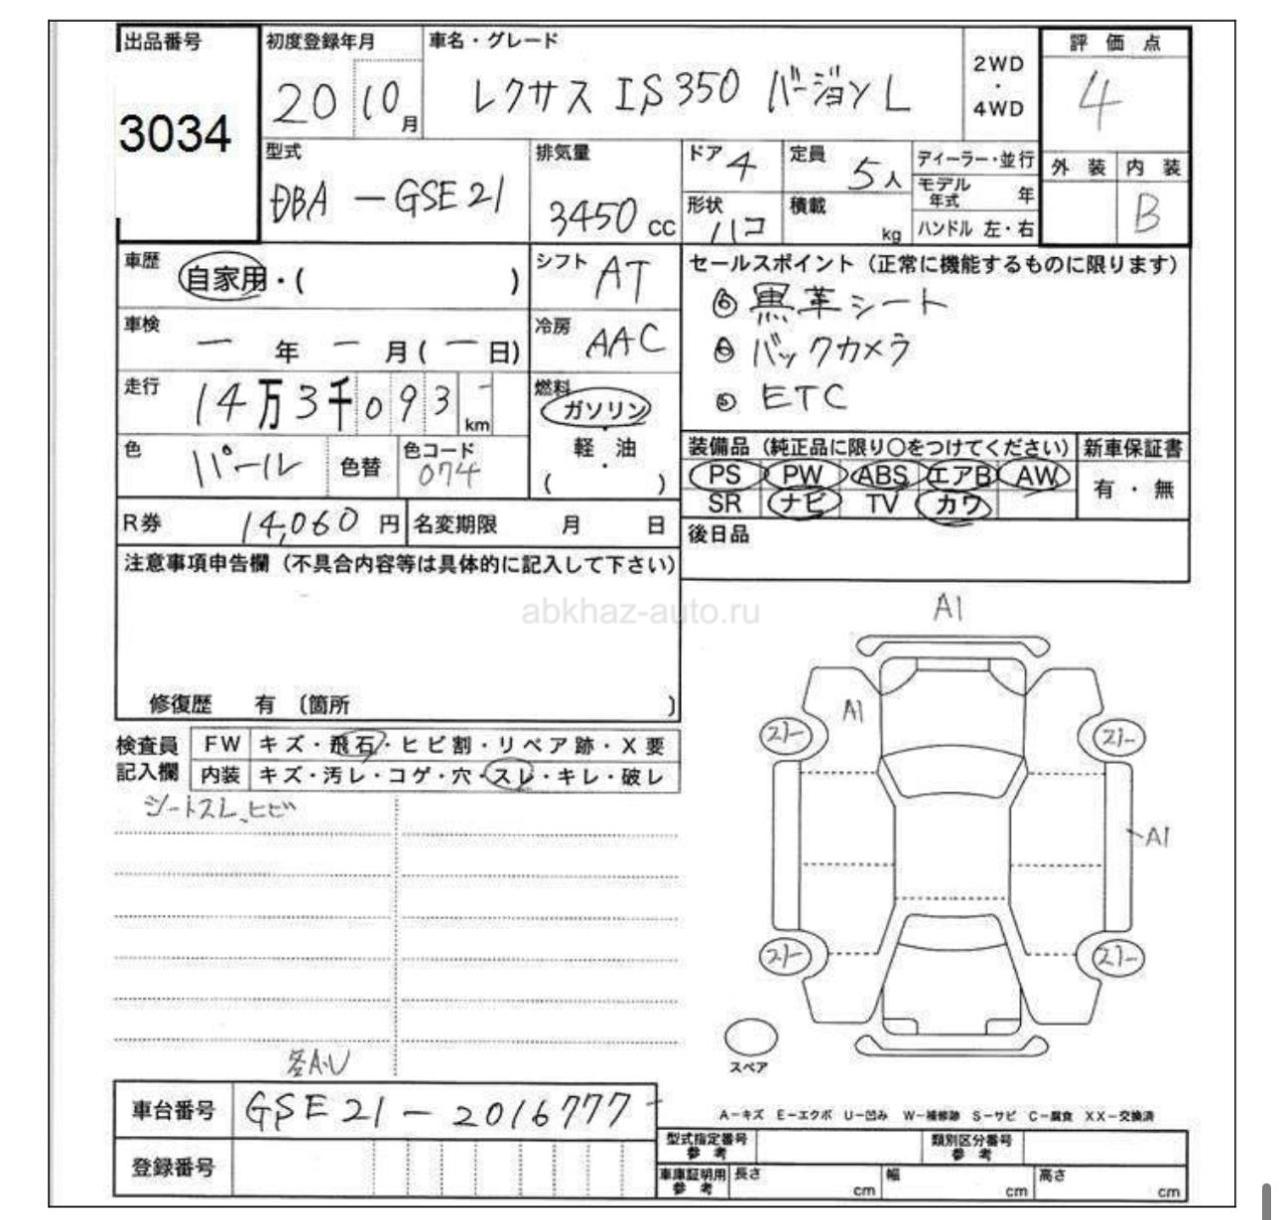 出品番号
3034
初度登録年月
20 10月
車名・グレード
レクサス IS350 バージョンL
2WD
・
4WD
評価点
4
型式
DBA-GSE21
排気量
3450cc
ドア 4
定員 5人
ディーラー・並行
モデル年式 年
ハンドル 左・右
形状 ハコ
積載 kg
外装 内装
B
車歴
自家用・( )
シフト AT
セールスポイント(正常に機能するものに限ります)
黒革シート
バックカメラ
ETC
車検
ー年ー月(ー日)
冷房 AAC
走行
14万3千093 km
燃料
ガソリン
・
軽油
・
( )
色 パール
色替
色コード 074
装備品(純正品に限り○をつけてください)
新車保証書
PS PW ABS エアB AW
有・無
SR ナビ TV カワ
R券 14,060円
名変期限 月 日
後日品
注意事項申告欄(不具合内容等は具体的に記入して下さい)
修復歴 有 〔箇所 〕
abkhaz-auto.ru
検査員
記入欄
FW キズ・飛石・ヒビ割・リペア跡・X要
内装 キズ・汚レ・コゲ・穴・スレ・キレ・破レ
シートスレ、ヒビ
各A・U
A1
A1
A1
スペア
A-キズ E-エクボ U-凹み W-補修跡 S-サビ C-腐食 XX-交換済
車台番号 GSE21-2016777
登録番号
型式指定番号
参考
類別区分番号
参考
車庫証明用
参考
長さ cm
幅 cm
高さ cm